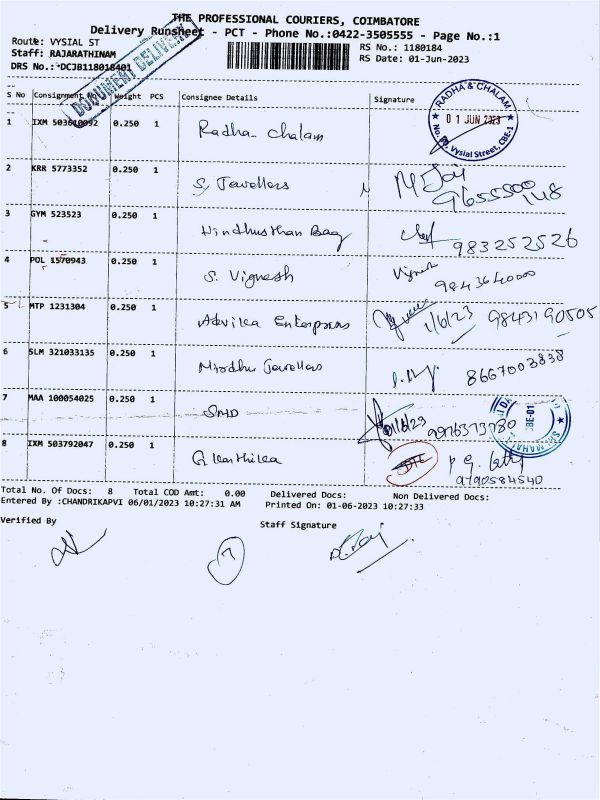 THE PROFESSIONAL COURIERS, COIMBATORE
Delivery Runsheet - PCT - Phone No.:0422-3505555 - Page No.:1
Route: VYSIAL ST
RS No.: 1180184
Staff: RAJARATHINAM
RS Date: 01-Jun-2023
DRS No.: DCJB118018401
DOCUMENT DELIVERY
S No Consignment No Weight PCS Consignee Details Signature
RADHA & CHALAM
01 JUN 2023
Vysial Street, CBE-1
1 IXM 503610092 0.250 1 Radha Chalam
2 KRR 5773352 0.250 1 S, Jewellers
9655500148
3 GYM 523523 0.250 1 Hindhusthan Bag 983252526
4 POL 1570943 0.250 1 S. Vignesh Vignesh
9843640000
5 MTP 1231304 0.250 1 Advika Enterprises 1/6/23 9843190505
6 SLM 321033135 0.250 1 Mirdhu Jewellers 8667003838
7 MAA 100054025 0.250 1 SMD
CBE-01
8 IXM 503792047 0.250 1 G Karthika
9790584540
Total No. Of Docs: 8 Total COD Amt: 0.00 Delivered Docs: Non Delivered Docs:
Entered By :CHANDRIKAPVI 06/01/2023 10:27:31 AM Printed On: 01-06-2023 10:27:33
Verified By Staff Signature
7